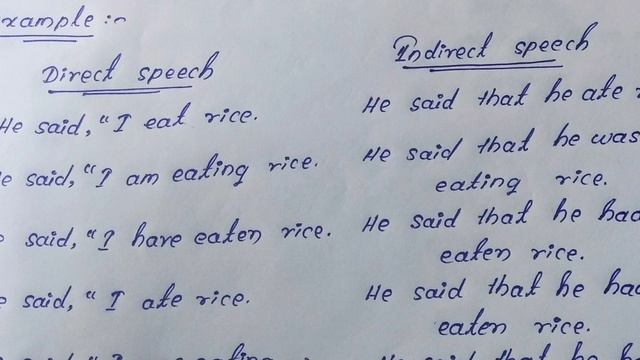 xample :-
Direct speech
He said, "I eat rice.
e said, "I am eating rice.
said, "I have eaten rice.
e said, "I ate rice.
Indirect speech
He said that he ate
He said that he was
eating rice.
He said that he had
eaten rice.
He said that he had
eaten rice.